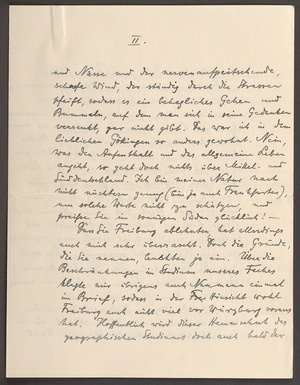 II.
und Nässe und der nervenaufpeitschende,
scharfe Wind, der ständig durch die Strassen
pfeift, sodass es ein behagliches Gehen und
Bummeln, auf dem man sich in seine Gedanken
versenkt, gar nicht gibt. Das war ich in dem
lieblichen Göttingen so anders gewohnt. Nein,
was den Aufenthalt und das allgemeine Leben
angeht, so geht doch nichts über Mittel- und
Süddeutschland. Ich bin meiner Natur nach
nicht nüchtern genug (bin ja auch Frankfurter),
um solche Werte nicht zu schätzen, und
preise Sie im sonnigen Süden glücklich! —
Dass Sie Freiburg ablehnten, hat allerdings
auch mich sehr überrascht. Doch die Gründe,
die Sie nennen, leuchten ja ein. Über die
Beschränkungen im Studium unseres Faches
klagte mir übrigens auch
im Brief, sodass in der Hinsicht wohl
Freiburg auch nicht viel vor Würzburg voraus
hat. Hoffentlich wird dieser Hemmschuh des
geographischen Studiums doch auch bald der